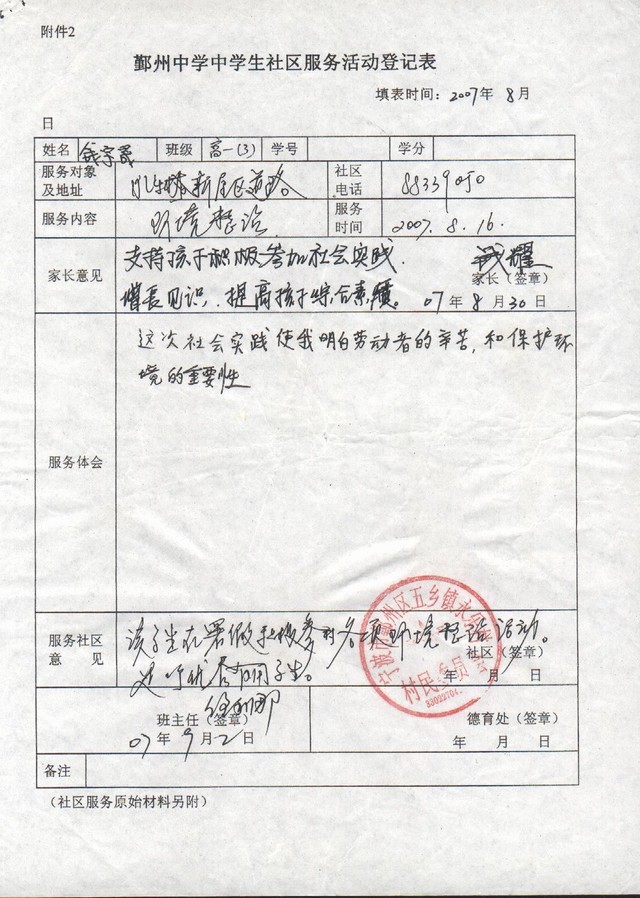 附件2
鄞州中学中学生社区服务活动登记表
填表时间：2007年 8月
日
姓名 班级 高一(3) 学号 学分
服务对象及地址 社区电话 88339050
服务内容 环境整治 服务时间 2007.8.16.
家长意见 支持孩子积极参加社会实践.
增长见识,提高孩子综合素质。
家长（签章）
07年8月30日
服务体会 这次社会实践使我明白劳动者的辛苦,和保护环
境的重要性
服务社区意见 该学生在暑假积极参与各项环境整治活动。
学生。
社区（签章）
年 月 日
宁波市鄞州区五乡镇
村民委员
班主任（签章）
07年9月2日
德育处（签章）
年 月 日
备注
（社区服务原始材料另附）